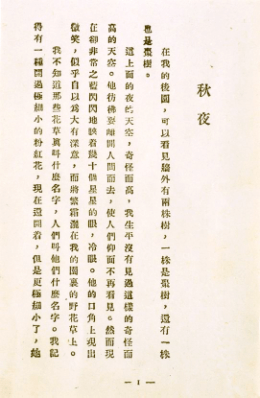 秋夜
在我的後園,可以看見牆外有兩株樹,一株是棗樹,還有一株
也是棗樹。
這上面的夜的天空,奇怪而高,我生平沒有見過這樣的奇怪而
高的天空。他彷彿要離開人間而去,使人們仰面不再看見。然而現
在卻非常之藍閃閃地䀹着幾十個星星的眼,冷眼。他的口角上現出
微笑,似乎自以為大有深意,而將繁霜灑在我的園裏的野花草上。
我不知道那些花草真叫什麼名字,人們叫他們什麼名字。我記
得有一種開過極細小的粉紅花,現在還開着,但是更極細小了,她
— 1 —